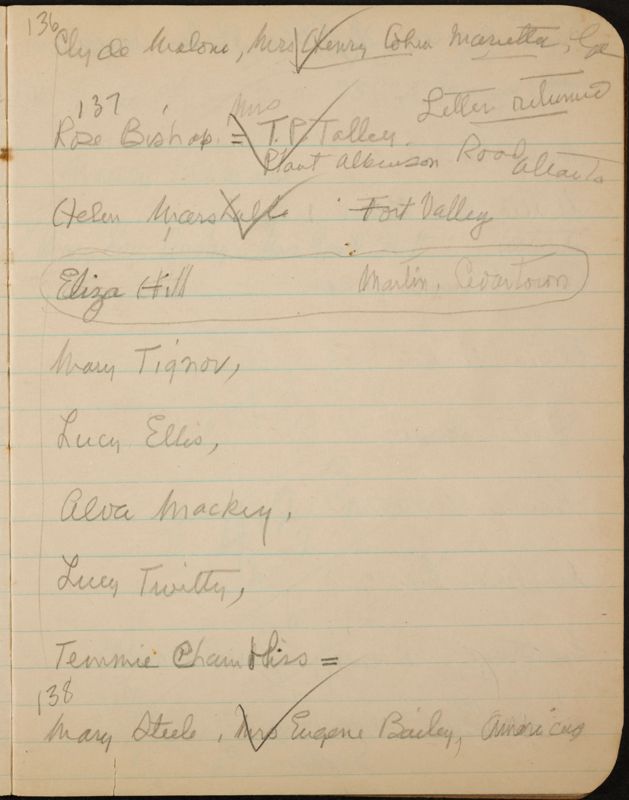 136
Clyde Malone, Mrs Henry Cohen Marietta, Ga
Letter returned
137
Mrs
Rose Bishop = T.P. Talley.
Plant Atkinson Road Atlanta
Helen Marshall Fort Valley
Eliza Hill Martin, Cedartown
Mary Tignor,
Lucy Ellis,
Alva Mackey,
Lucy Twitty,
Temmie Chambliss =
138
Mary Steele, Mrs Eugene Bailey, Americus